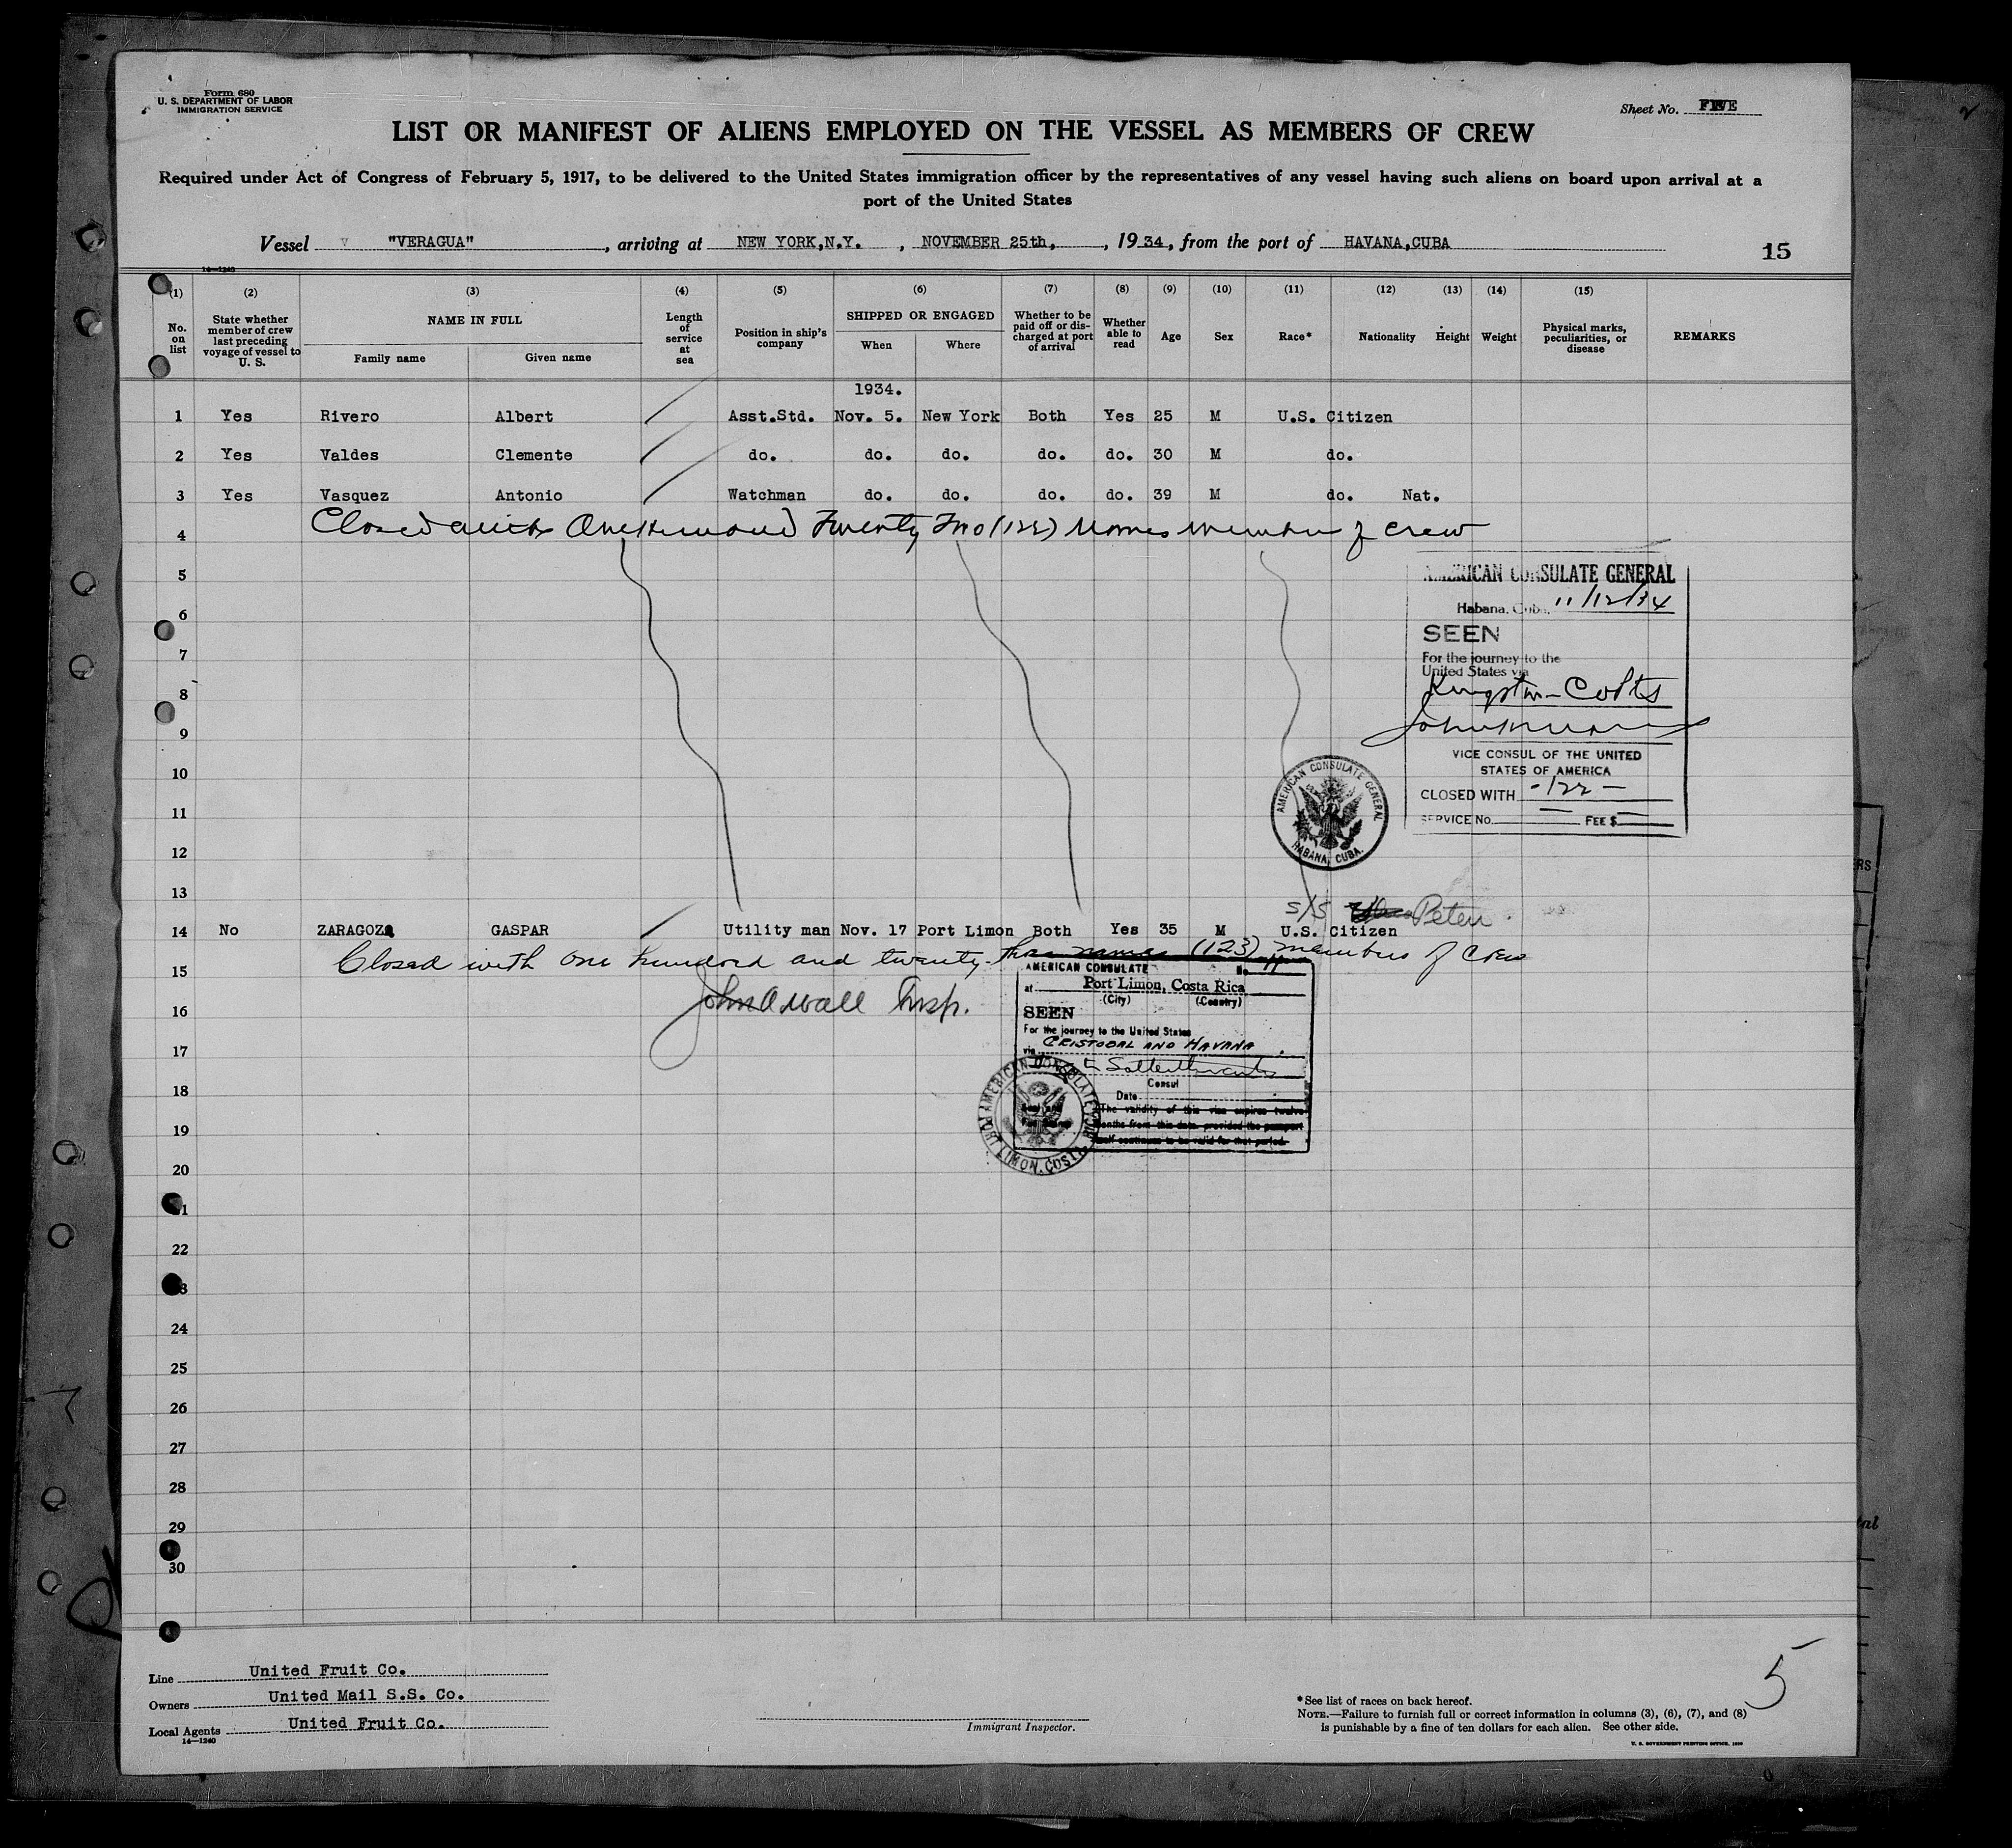 Form 680
U. S. DEPARTMENT OF LABOR
IMMIGRATION SERVICE
Sheet No. FIVE
LIST OR MANIFEST OF ALIENS EMPLOYED ON THE VESSEL AS MEMBERS OF CREW
Required under Act of Congress of February 5, 1917, to be delivered to the United States immigration officer by the representatives of any vessel having such aliens on board upon arrival at a
port of the United States
Vessel "VERAGUA", arriving at NEW YORK,N.Y., NOVEMBER 25th,, 1934, from the port of HAVANA,CUBA
15
14—1240
(1) (2) (3) (4) (5) (6) (7) (8) (9) (10) (11) (12) (13) (14) (15)
No. on list State whether member of crew last preceding voyage of vessel to U. S. NAME IN FULL Family name Given name Length of service at sea Position in ship's company SHIPPED OR ENGAGED When Where Whether to be paid off or discharged at port of arrival Whether able to read Age Sex Race* Nationality Height Weight Physical marks, peculiarities, or disease REMARKS
1934.
1 Yes Rivero Albert Asst.Std. Nov. 5. New York Both Yes 25 M U.S. Citizen
2 Yes Valdes Clemente do. do. do. do. do. 30 M do.
3 Yes Vasquez Antonio Watchman do. do. do. do. 39 M do. Nat.
4 Closed with One Hundred Twenty Two (122) Names member of crew
5
6
7
8
9
10
11
12
13
AMERICAN CONSULATE GENERAL
Habana, Cuba, 11/12/34
SEEN
For the journey to the
United States via
Kingston - Colts
VICE CONSUL OF THE UNITED
STATES OF AMERICA
CLOSED WITH -122-
SERVICE No. FEE $
AMERICAN CONSULATE GENERAL
HABANA, CUBA.
S/S Peten
14 No ZARAGOZA GASPAR Utility man Nov. 17 Port Limon Both Yes 35 M U.S. Citizen
Closed with one hundred and twenty-three names (123) members of crew
15
16
17
18
19
20
21
22
23
24
25
26
27
28
29
30
AMERICAN CONSULATE No.
at Port Limon, Costa Rica
(City) (Country)
SEEN
For the journey to the United States
via CRISTOBAL AND HAVANA
Consul
Date
The validity of this visa expires twelve
months from this date provided the passport
itself continues to be valid for that period.
AMERICAN CONSULATE
PORT LIMON, COSTA RICA
Line United Fruit Co.
Owners United Mail S.S. Co.
Local Agents United Fruit Co.
14—1240
Immigrant Inspector.
*See list of races on back hereof.
NOTE.—Failure to furnish full or correct information in columns (3), (6), (7), and (8)
is punishable by a fine of ten dollars for each alien. See other side.
U. S. GOVERNMENT PRINTING OFFICE
5